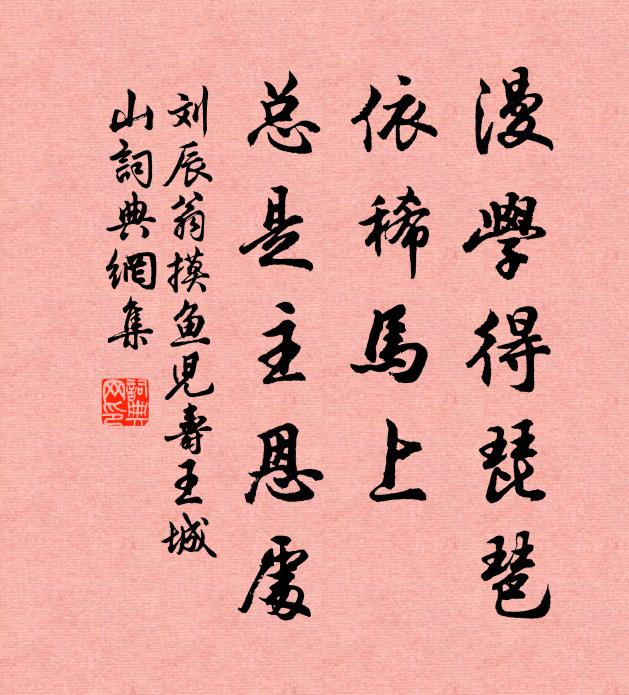 漫學得琵琶
依稀馬上
总是主恩處
刘辰翁摸鱼児壽王城
山詞典網集
詞典
网印